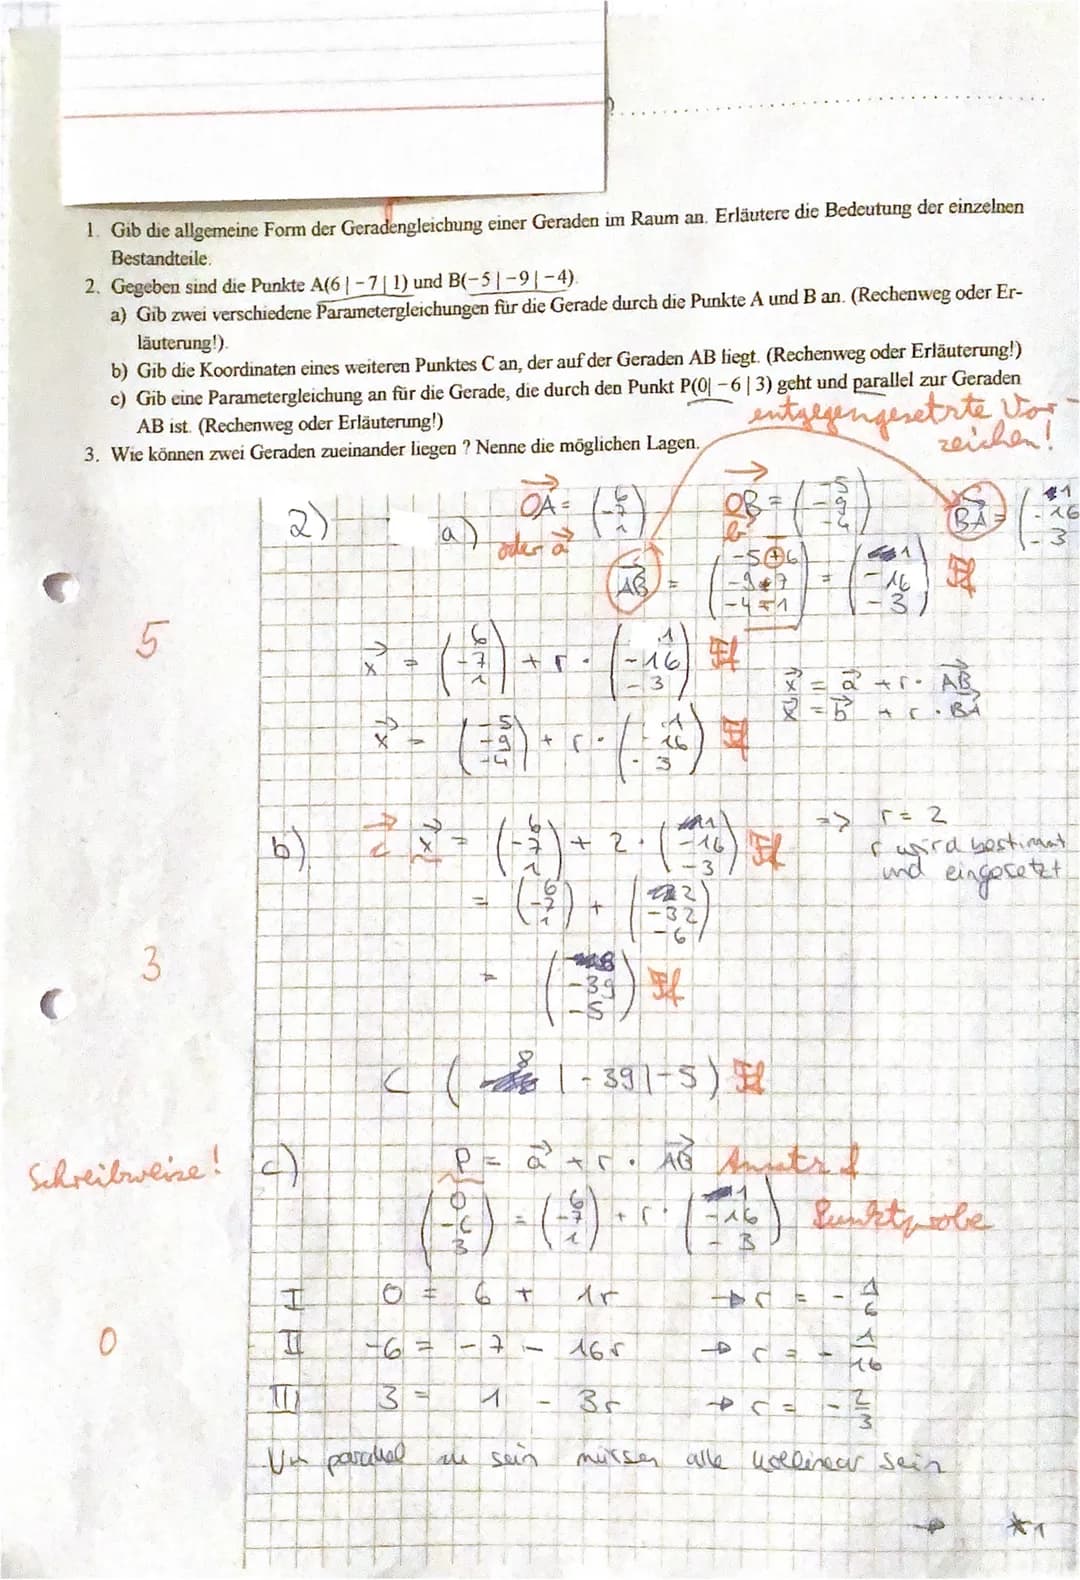 1. Gib die allgemeine Form der Geradengleichung einer Geraden im Raum an. Erläutere die Bedeutung der einzelnen
Bestandteile.
2. Gegeben sind die Punkte A(6 | −7 | 1) und B(−5 | −9 | −4).
a) Gib zwei verschiedene Parametergleichungen für die Gerade durch die Punkte A und B an. (Rechenweg oder Er-
läuterung!).
b) Gib die Koordinaten eines weiteren Punktes C an, der auf der Geraden AB liegt. (Rechenweg oder Erläuterung!)
c) Gib eine Parametergleichung an für die Gerade, die durch den Punkt P(0| −6 | 3) geht und parallel zur Geraden
AB ist. (Rechenweg oder Erläuterung!)
entgegengesetzte Vor-
zeichen!
3. Wie können zwei Geraden zueinander liegen ? Nenne die möglichen Lagen.
2) a) OA = (6 -7 1) OB = (-5 -9 -4) BA = (1 -16 -3)
oder a b
AB = (-5+6 -9+7 -4+1) = (1 -16 -3) ff
5
x = (6 -7 1) + r · (1 -16 -3) ff
x = a + r · AB
x = b + r · BA
x = (-5 -9 -4) + r · (1 -16 -3) ff
b) c x = (6 -7 1) + 2 · (1 -16 -3) ff => r = 2
r wird bestimmt
und eingesetzt
= (6 -7 1) + (2 -32 -6)
3
= (8 -39 -5) ff
C ( 8 | -39 | -5) ff
Schreibweise!
c) P = a + r · AB Ansatz f
(0 -6 3) = (6 -7 1) + r · (1 -16 -3) Punktprobe
I 0 = 6 + 1r → r = - 1/6
0
II -6 = -7 - 16r → r = - 1/16
III 3 = 1 - 3r → r = - 2/3
Um parallel zu sein müssen alle kollinear sein
→ *1